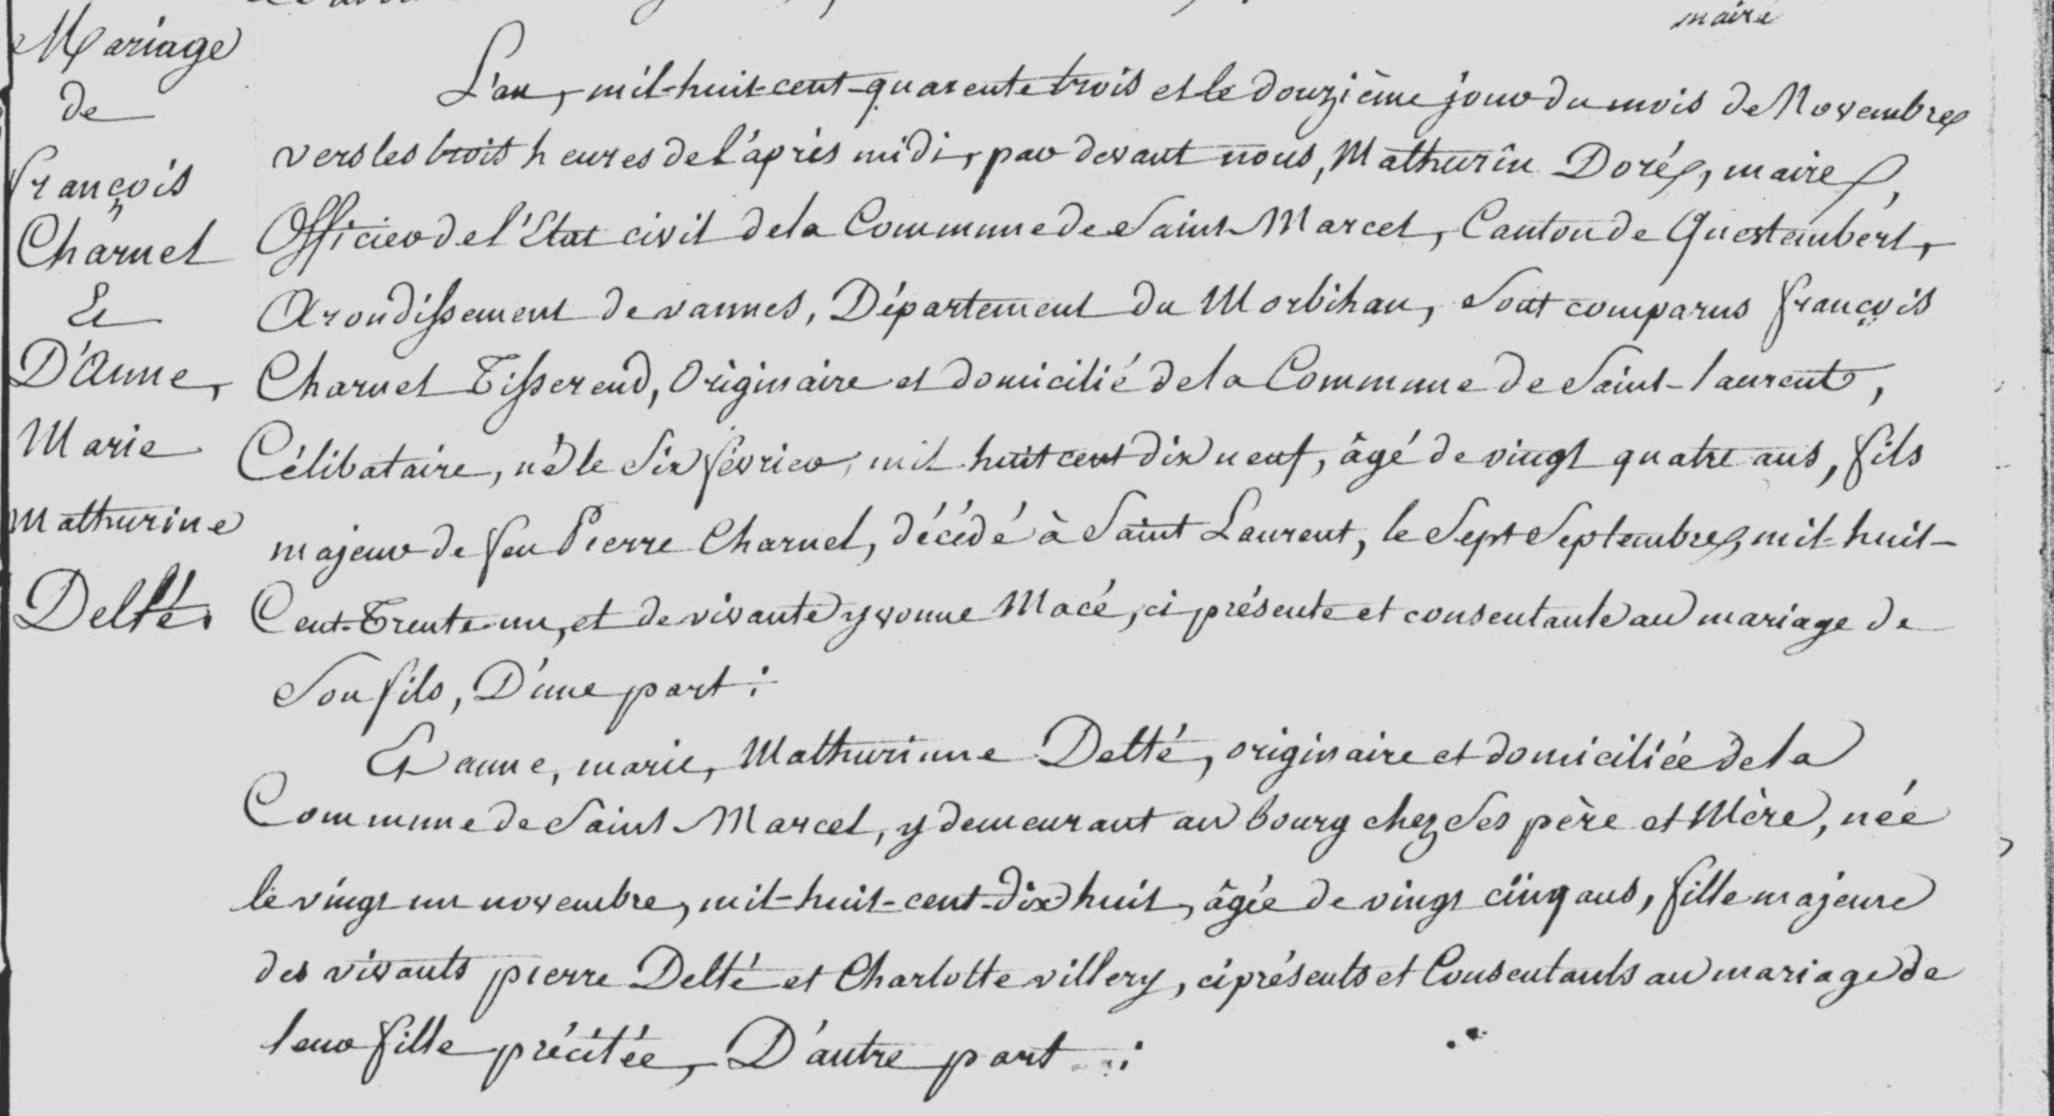 maire
Mariage
de
françois
Charuel
Et
D'Anne,
Marie
Mathurine
Delté.
L'an, mil-huit-cent-quarente trois et le douzième jour du mois de Novembre
vers les trois heures de l'après midi, par devant nous, Mathurin Doré, maire,
Officier de l'Etat civil de la Commune de Saint Marcel, Canton de Questembert,
Arondissement de vannes, Département du Morbihan, Sont comparus françois
Charuel Tisserend, Originaire et domicilié de la Commune de Saint-laurent,
Célibataire, né le Six février, mil huit cent dix neuf, âgé de vingt quatre ans, fils
majeur de feu Pierre Charuel, décédé à Saint Laurent, le Sept Septembre, mil-huit-
Cent-Trente-un, et de vivante yvonne Macé, ci présente et consentante au mariage de
Son fils, D'une part :
Et anne, marie, Mathurinne Delté, originaire et domiciliée de la
Commune de Saint Marcel, y demeurant au bourg chez Ses père et Mère, née
le vingt un novembre, mil-huit-cent-dix huit, âgée de vingt cinq ans, fille majeure
des vivants pierre Delté et Charlotte villery, ci présents et Consentants au mariage de
leur fille précitée, D'autre part :